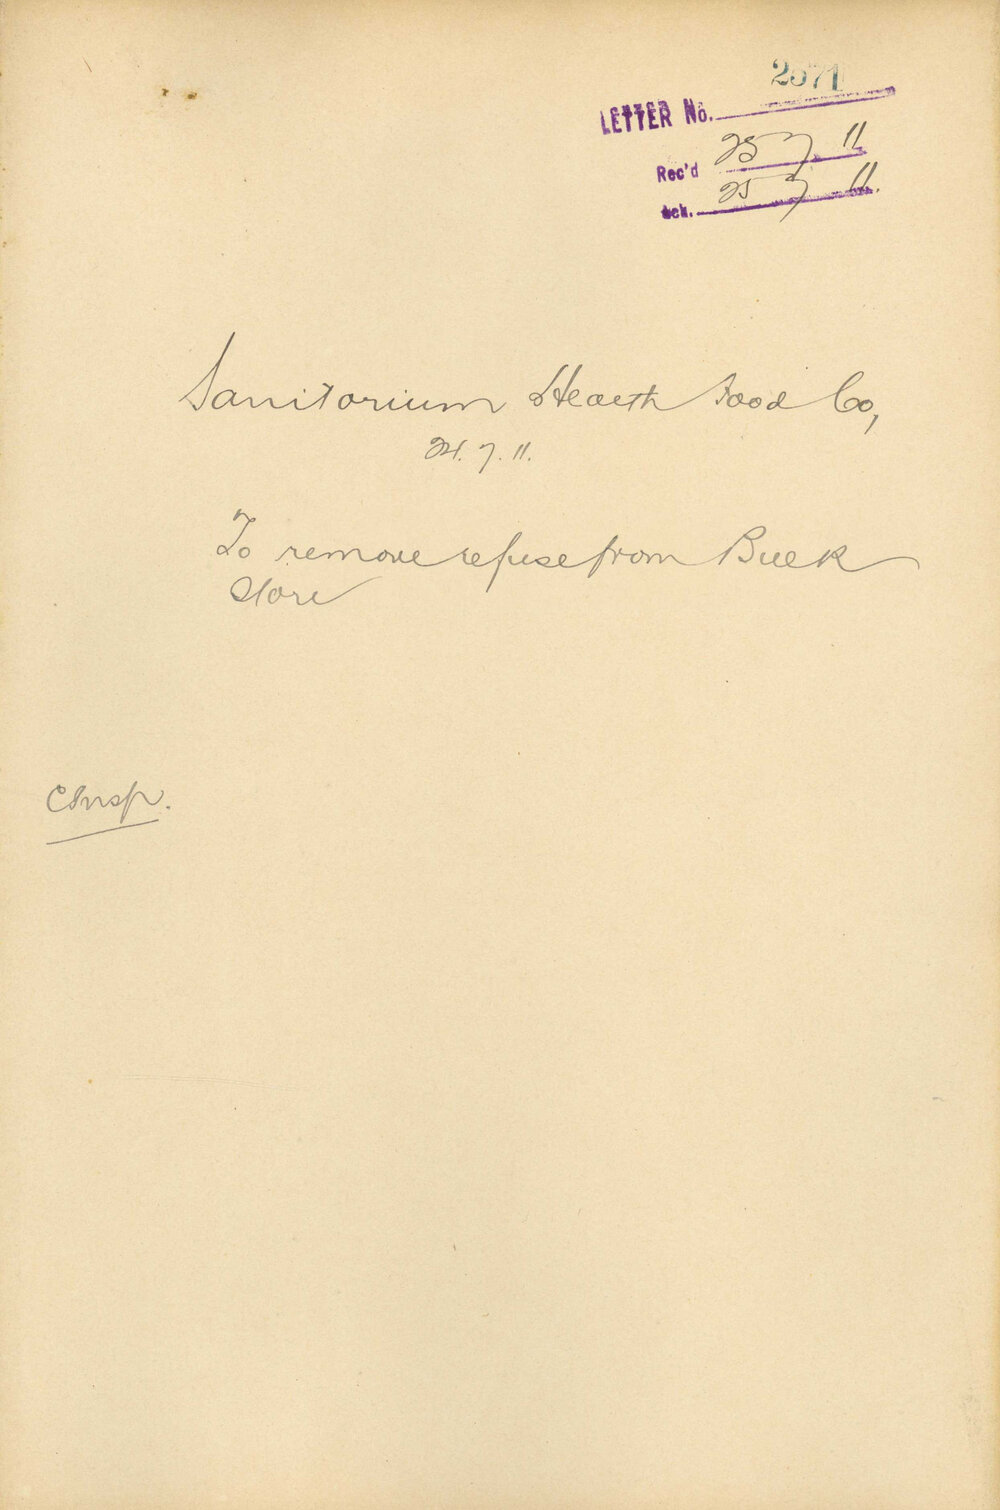 2571
LETTER No.
Rec'd 25 7. 11
Ack. 25 7 11.
Sanitorium Health Food Co,
24. 7. 11.
To remove refuse from Bulk
Store
CInsp.